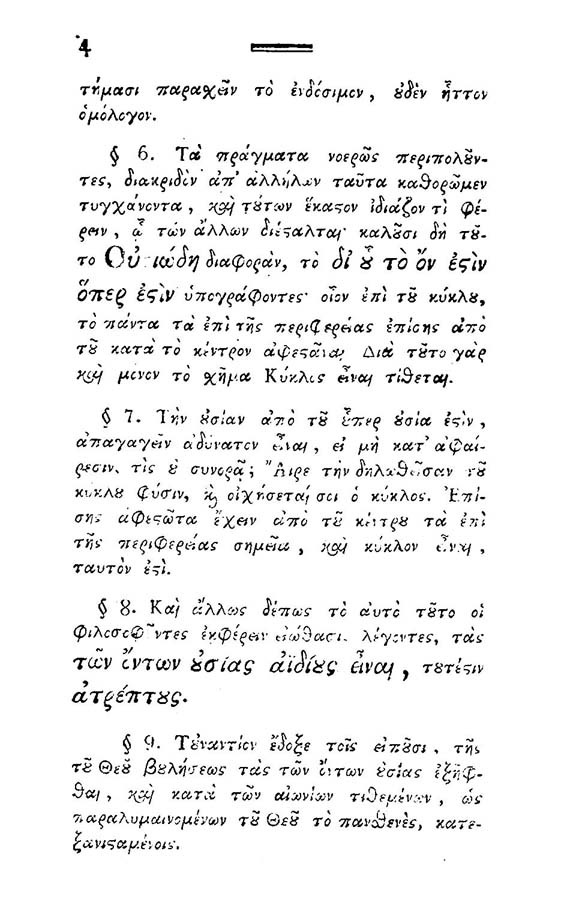 4
τήμασι παραχεῖν τὸ ἐνδόσιμον, ȣ̓δὲν ἧττον
ὁμόλογον.
§ 6. Τὰ πράγματα νοερῶς περιπολȣ͂ν-
τες, διακριδὸν ἀπ' ἀλλήλων ταῦτα καθορῶμεν
τυγχάνοντα, καὶ τȣ́των ἕκαϛον ἰδιάζον τὶ φέ-
ρειν, ᾧ τῶν ἄλλων διέϛαλται· καλȣ͂σι δὴ τȣ͂-
το Οὐσιώδη διαφορὰν, τὸ δι' ȣ̔͂ τὸ ὄν ἐϛὶν
ὅπερ ἐϛὶν ὑπογράφοντες· οἷον ἐπὶ τȣ͂ κύκλȣ,
τὸ πάντα τὰ ἐπὶ τῆς περιφερείας ἐπίσης ἀπὸ
τȣ͂ κατὰ τὸ κέντρον ἀφεϛάναι· Διὰ τȣ͂το γὰρ
καὶ μόνον τὸ χῆμα Κύκλος εἶναι τίθεται.
§ 7. Τὴν ȣ̓σίαν ἀπὸ τȣ͂ ὅπερ ȣ̓σία ἐϛὶν,
ἀπαγαγεῖν ἀδύνατον εἶναι, εἰ μὴ κατ' ἀφαί-
ρεσιν, τὶς ȣ̓ συνορᾷ; Ἄιρε τὴν δηλωθεῖσαν τȣ͂
κύκλȣ φύσιν, καὶ οἰχήσεταί σοι ὁ κύκλος. Ἐπί-
σης ἀφεϛῶτα ἔχειν ἀπὸ τȣ͂ κέντρȣ τὰ ἐπὶ
τῆς περιφερείας σημεῖα, καὶ κύκλον εἶναι,
ταυτὸν ἐϛί.
§ 8. Καὶ ἄλλως δέπως τὸ αὐτὸ τȣ͂το οἱ
φιλοσοφȣ͂ντες ἐκφέρειν εἰώθασι, λέγοντες, τὰς
τῶν ὄντων ȣ̓σίας ἀϊδίȣς εἶναι, τȣτέϛιν
ἀτρέπτȣς.
§ 9. Τȣ̓ναντίον ἔδοξε τοῖς εἰπȣ͂σι, τῆς
τȣ͂ Θεȣ͂ βȣλήσεως τὰς τῶν ὄντων ȣ̓σίας ἐξῆφ-
θαι, καὶ κατὰ τῶν αἰωνίων τιθεμένων, ὡς
παραλυμαινομένων τȣ͂ Θεȣ͂ τὸ πανσθενὲς, κατε-
ξανιϛαμένοις.